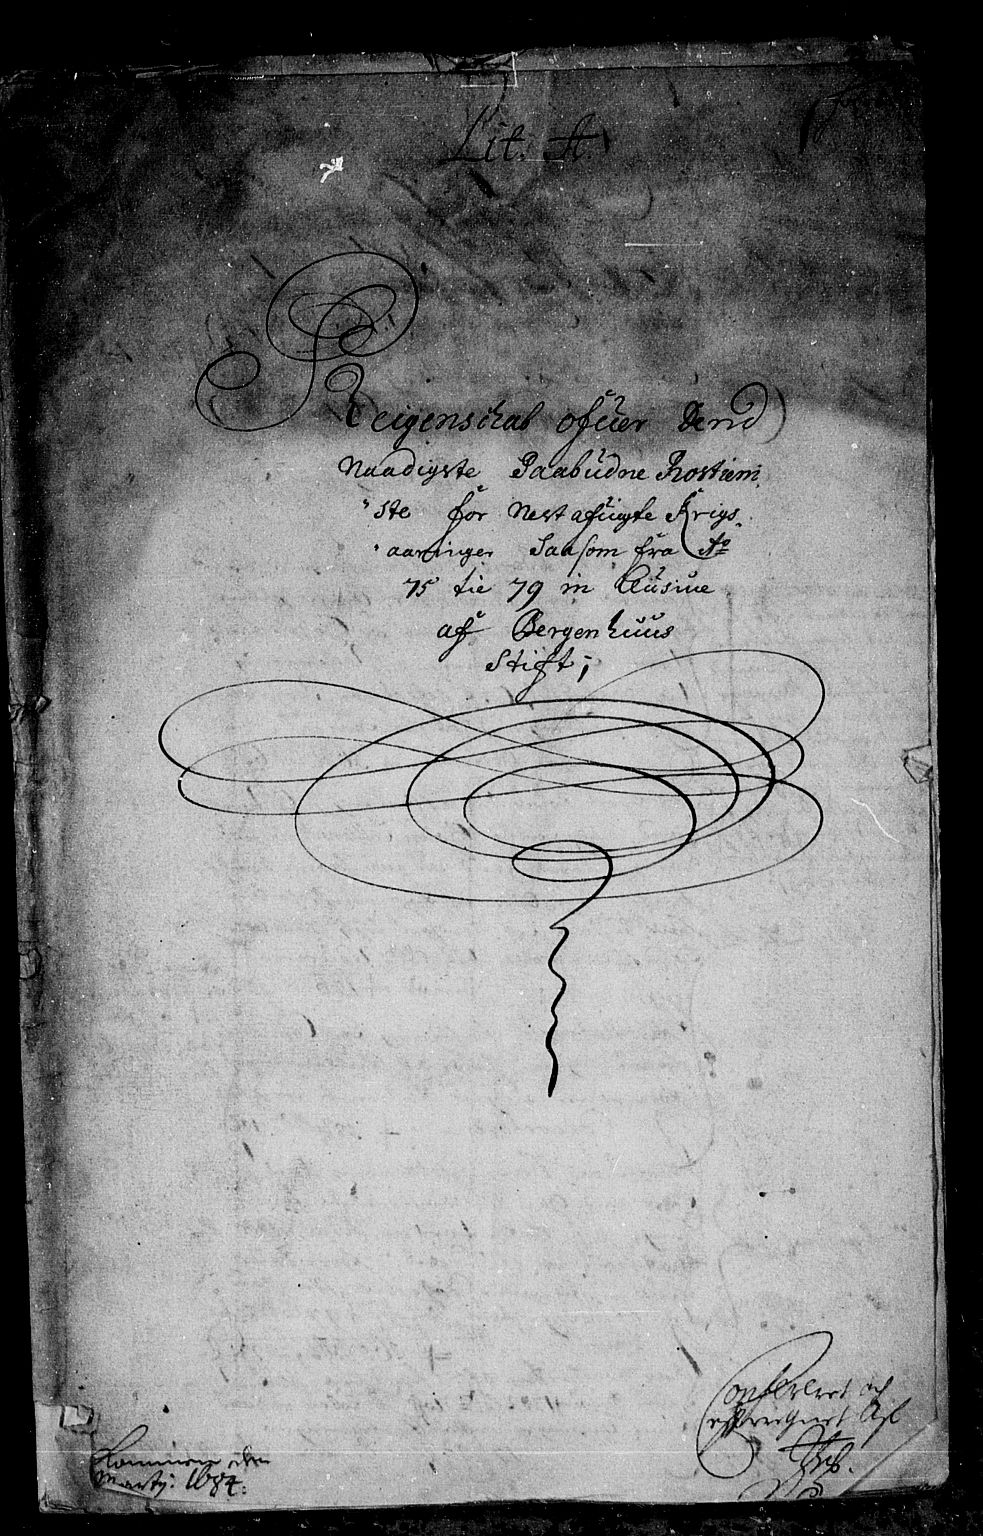 Lit. A
Reigenschab ofuer dend
Naadigste Paabudne Rostiæni
ste for Nest afuigte Krigs
aaringer Saasom fra Ao
75 tie 79 inclusiue
af Bergenhuus
Stift;
Confereret och
Martj: 1684: